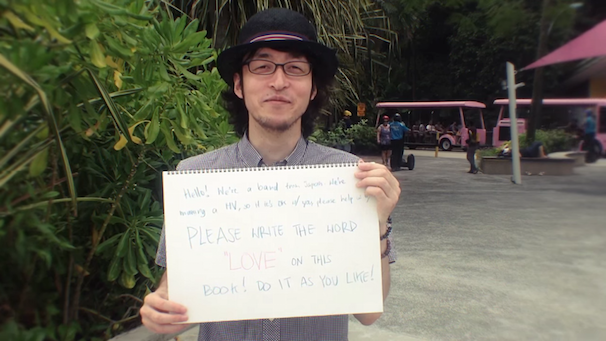 Hello! We're a band from Japan. We're
making a MV, so it's ok if you please help us
PLEASE WRITE THE WORD
"LOVE" ON THIS
BOOK! DO IT AS YOU LIKE!